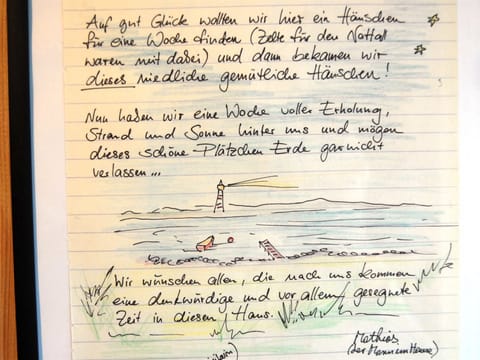 Auf gut Glück wollten wir hier ein Häuschen
für eine Woche finden (Zelte für den Notfall
waren mit dabei) und dann bekamen wir
dieses niedliche gemütliche Häuschen!
Nun haben wir eine Woche voller Erholung,
Strand und Sonne hinter uns und mögen
dieses schöne Plätzchen Erde garnicht
verlassen...
Wir wünschen allen, die nach uns kommen
eine denkwürdige und vor allem gesegnete
Zeit in diesem Haus.
Mathias